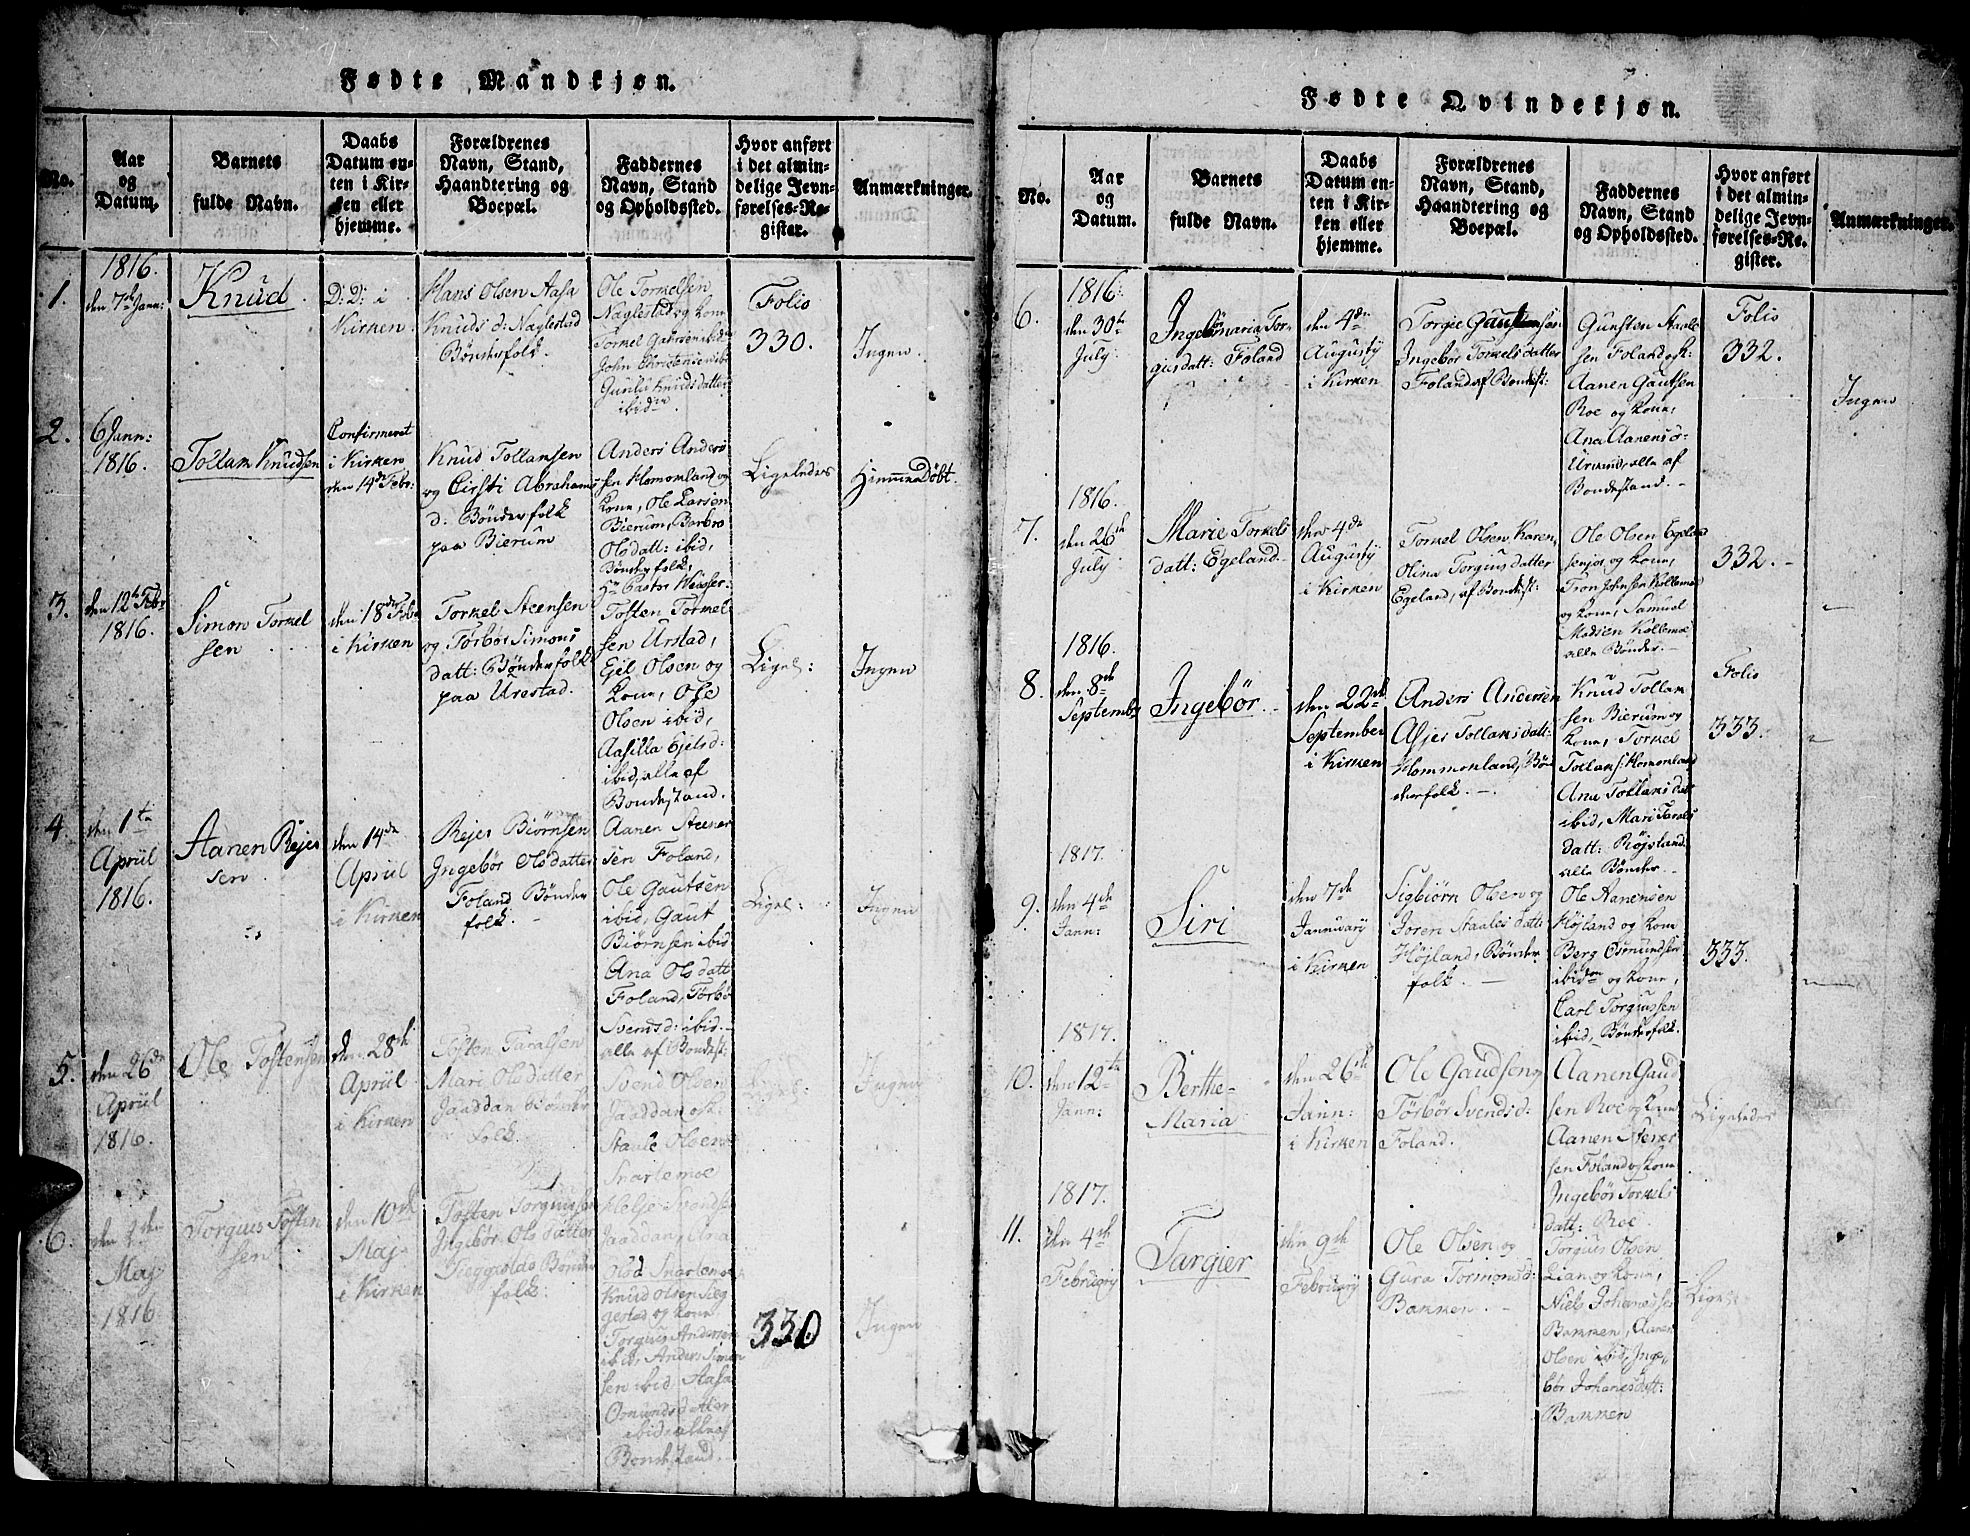 Fødte Mandkjøn.
No.
Aar
og
Datum.
Barnets
fulde Navn.
Daabs
Datum en-
ten i Kir-
ken eller
hjemme.
Forældrenes
Navn, Stand,
Haandtering og
Boepæl.
Faddernes
Navn, Stand
og Opholdssted.
Hvor anført
i det almin-
delige Jevn-
førelses-Re-
gister.
Anmærkninger.
1.
1816.
den 7de Jann:
Knud
D: D: i
Kirken
Hans Olsen Aasa
Knuds d: Naglestad
Bønderfolk.
Ole Torkelsen
Naglestad og kone
Torkel
John Christensen ibid
Gunild Knudsdatter
ibid
Folio
330.
Ingen
2.
6 Jann:
1816.
Tollam Knudsen
Confirmeret
i Kirken
den 14de Febr:
Knud Tollansen
og Cirsti Abrahams
d: Bønderfolk
paa Bierum
Anders Anders
sen Homomland og
kone, Ole Larsen
Bierum, Barbro
Olsdatt: ibid,
Bønderfolk,
Hr Pastor Weisser:
Ligeledes
HiemmeDøbt.
3.
den 12te Febr
1816.
Simon Torkel
sen
den 18de Febr
i Kirken
Torkel Steensen
og Torbor Simons
datt: Bønderfolk
paa Urestad.
Tosten Torkel
sen Urstad,
Ejel Olsen og
kone, Ose
Olsen ibid,
Aasilla Ejelsd:
ibid, alle af
Bondestand.
Ligel:
Ingen
4.
den 1te
Apriil
1816.
Aanen Rejer
sen
den 14de
Apriil
i Kirken
Rejer Biørnsen
Ingebør Olsdatter
Foland Bønder
folk.
Aanen Steener
sen Foland,
Ole Gautsen
ibid, Gaut
Biørnsen ibid
Ana Olsdatt
Foland, Torbør
Svendsd: ibid.
alle af Bondest:
Ligel:
Ingen
5.
den 26de
Apriil
1816.
Ole Tostensen
den 28de
Apriil
i Kirken
Tosten Taralsen
Mari Olsdatter
Jaaddan Bønder
folk.
Svend Olsen
Jaaddan og k:
Staale Olsen
Snartemoe
Helje Svends
Jaaddan, Ana
Olsd Snartemoe
Ligel:
Ingen
6.
den 2den
Maj
1816
Torguis Tosten
sen
den 10de
Maj
i Kirken
Tosten Torguissen
Ingebør Olsdatter
Bønder
folk:
Knud Olsen Sieg
gestad og kone
Torguis Andersen
ibid, Anders Simon
sen ibid, Aasa
Osmundsdatter
ibid, alle af
Bondestand.
330
Ingen
Fødte Qvindekjøn.
No.
Aar
og
Datum.
Barnets
fulde Navn.
Daabs
Datum en-
ten i Kir-
ken eller
hjemme.
Forældrenes
Navn, Stand,
Haandtering og
Boepæl.
Faddernes
Navn, Stand
og Opholdssted.
Hvor anført
i det almin-
delige Jevn-
førelses-Re-
gister.
Anmærkninger.
6.
1816.
den 30te
July
Ingebør maria Tor-
giusdatt: Foland
den 4de
Augusty
i Kirken
Torgie Gaudsen
Ingebør Torkelsdatter
Foland af Bondest:
Gunsten Staale
sen Foland og k:
Aanen Gautsen
Roe og kone,
Ana Aanensd:
Urvand, alle af
Bondestand.
Folio
332.
Ingen
7.
1816.
den 26de
July
Marie Torkels
datt: Egeland
den 4de
Augusty
i Kirken
Torkel Olsen, Karen,
Olina Torguisdatter
Egeland, af Bondest:
Ole Olsen Egeland
senjor og kone,
Tron Johnsen Kollemoe
og kone, Samuel
Madsen Kollemoe
alle Bønder.
332.
8.
1816.
den 8de
September
Ingebør.
den 22de
September
i Kirken
Anders Andersen
Asjer Tollaksdatt:
Hommonland, Bøn
derfolk.
Knud Tollak
sen Bierum og
kone, Torkel
Tollaks: Homonland
Ana Tollaksdatt
ibid, Mari Tarals
datt: Røjsland
alle Bønder.
Folio
333.
9.
1817.
den 4de
Jann:
Siri
den 7de
Januari
i Kirken
Sigbiørn Olsen og
Joren Staalesdatt:
Højland, Bønder
folk.
Ole Aanensen
Højland og kone
Berg Osmundsen
ibidem og kone,
Carl Torguissen
ibid, Bønderfolk.
333.
10.
1817.
den 12te
Jann:
Berthe
Maria
den 26de
Jann:
i Kirken
Ole Gaudsen og
Torbør Svendsd:
Foland.
Aanen Gaud
sen Roe og kone
Aanen Stener
sen Foland og kone
Ingebør Torkels
datt: Roe
Ligeledes
11.
1817.
den 4de
February
Targier
den 9de
February
Ole Olsen og
Gura Tormonsd:
Bakken.
Torguis Olsen
Lian og kone,
Niels Johannessen
Bakken, Aanen
Olsen ibid, Inge-
bør Johannesdatt:
Bakken
Ligel: